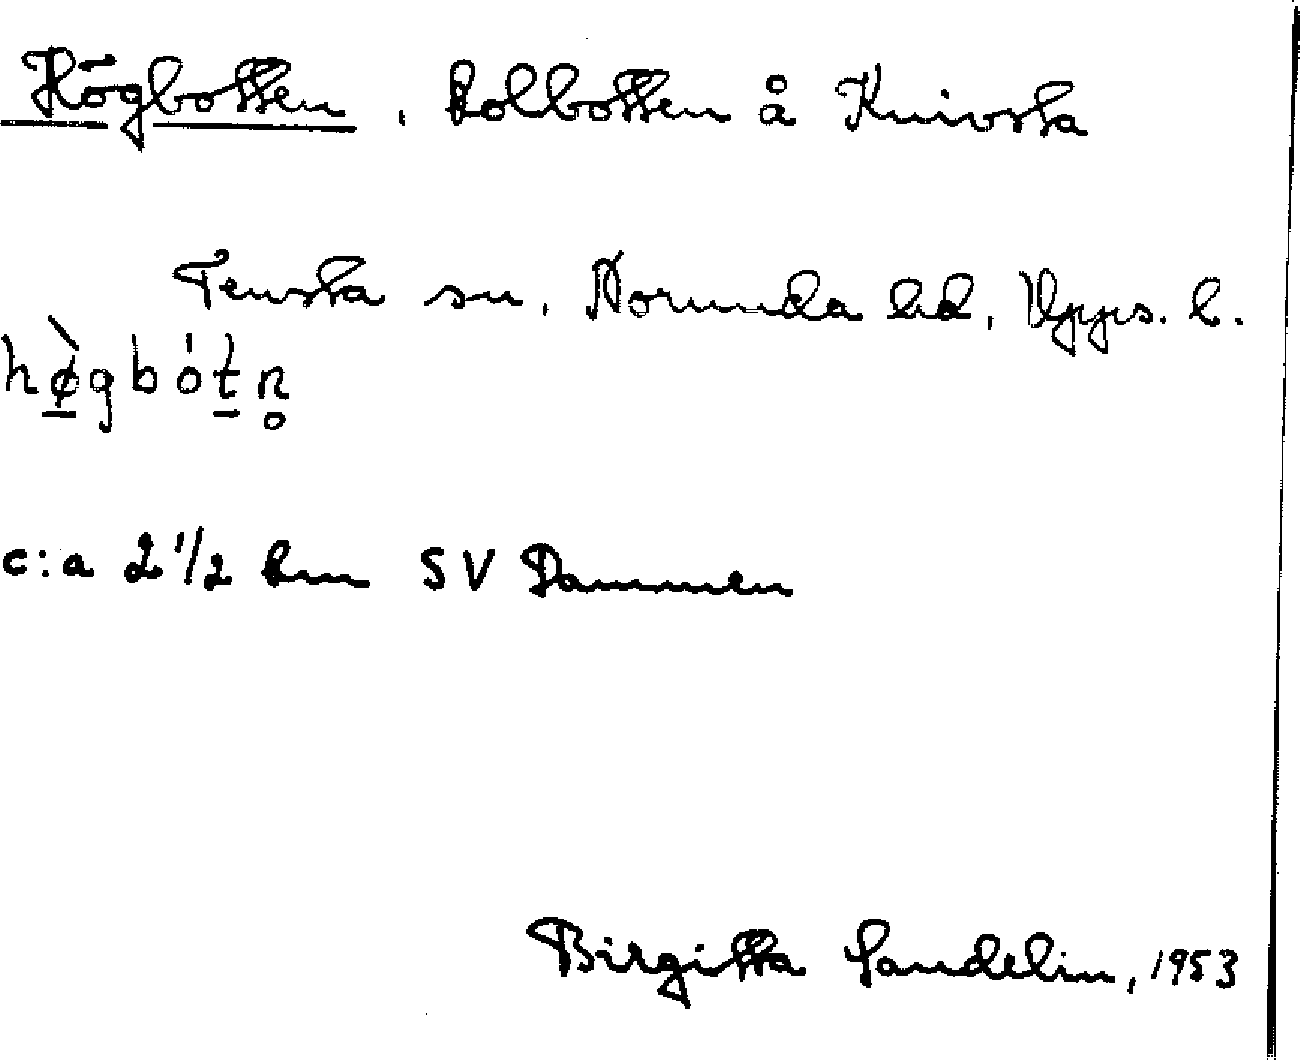 Högbotten, kolbotten å Knivsta
Tensta sn, Norunda hd, Upps. l.
hø̀gbótn̥
c:a 2 1/2 km SV Dammen
Birgitta Sandelin, 1953